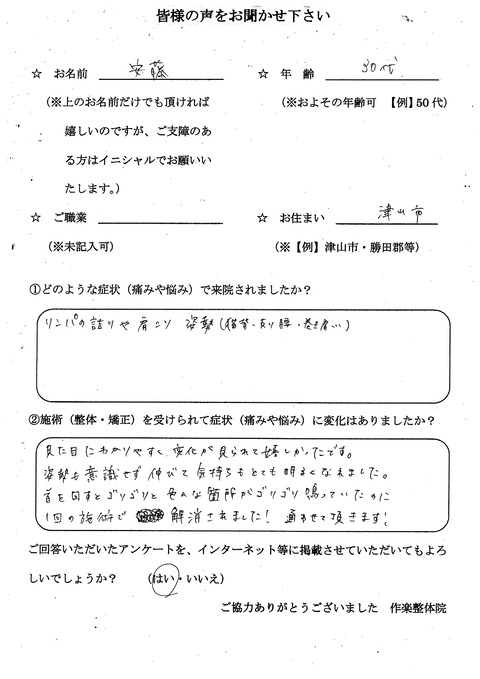 皆様の声をお聞かせ下さい
☆ お名前 安藤 ☆ 年 齢 30代
（※上のお名前だけでも頂ければ （※およその年齢可 【例】50代）
嬉しいのですが、ご支障のあ
る方はイニシャルでお願いい
たします。）
☆ ご職業 ☆ お住まい 津山市
（※未記入可） （※【例】津山市・勝田郡等）
①どのような症状（痛みや悩み）で来院されましたか？
リンパの詰りや肩こり 姿勢（猫背、反り腰、巻き肩い）
②施術（整体・矯正）を受けられて症状（痛みや悩み）に変化はありましたか？
見た目にわかりやすく変化が見られて嬉しかったです。
姿勢も意識せず伸びて気持ちもとても明るくなれました。
首を回すとゴリゴリと色んな箇所がゴリゴリ鳴っていたのに
1回の施術で 解消されました！ 通わせて頂きます！
ご回答いただいたアンケートを、インターネット等に掲載させていただいてもよろ
しいでしょうか？ （はい・いいえ）
ご協力ありがとうございました 作楽整体院